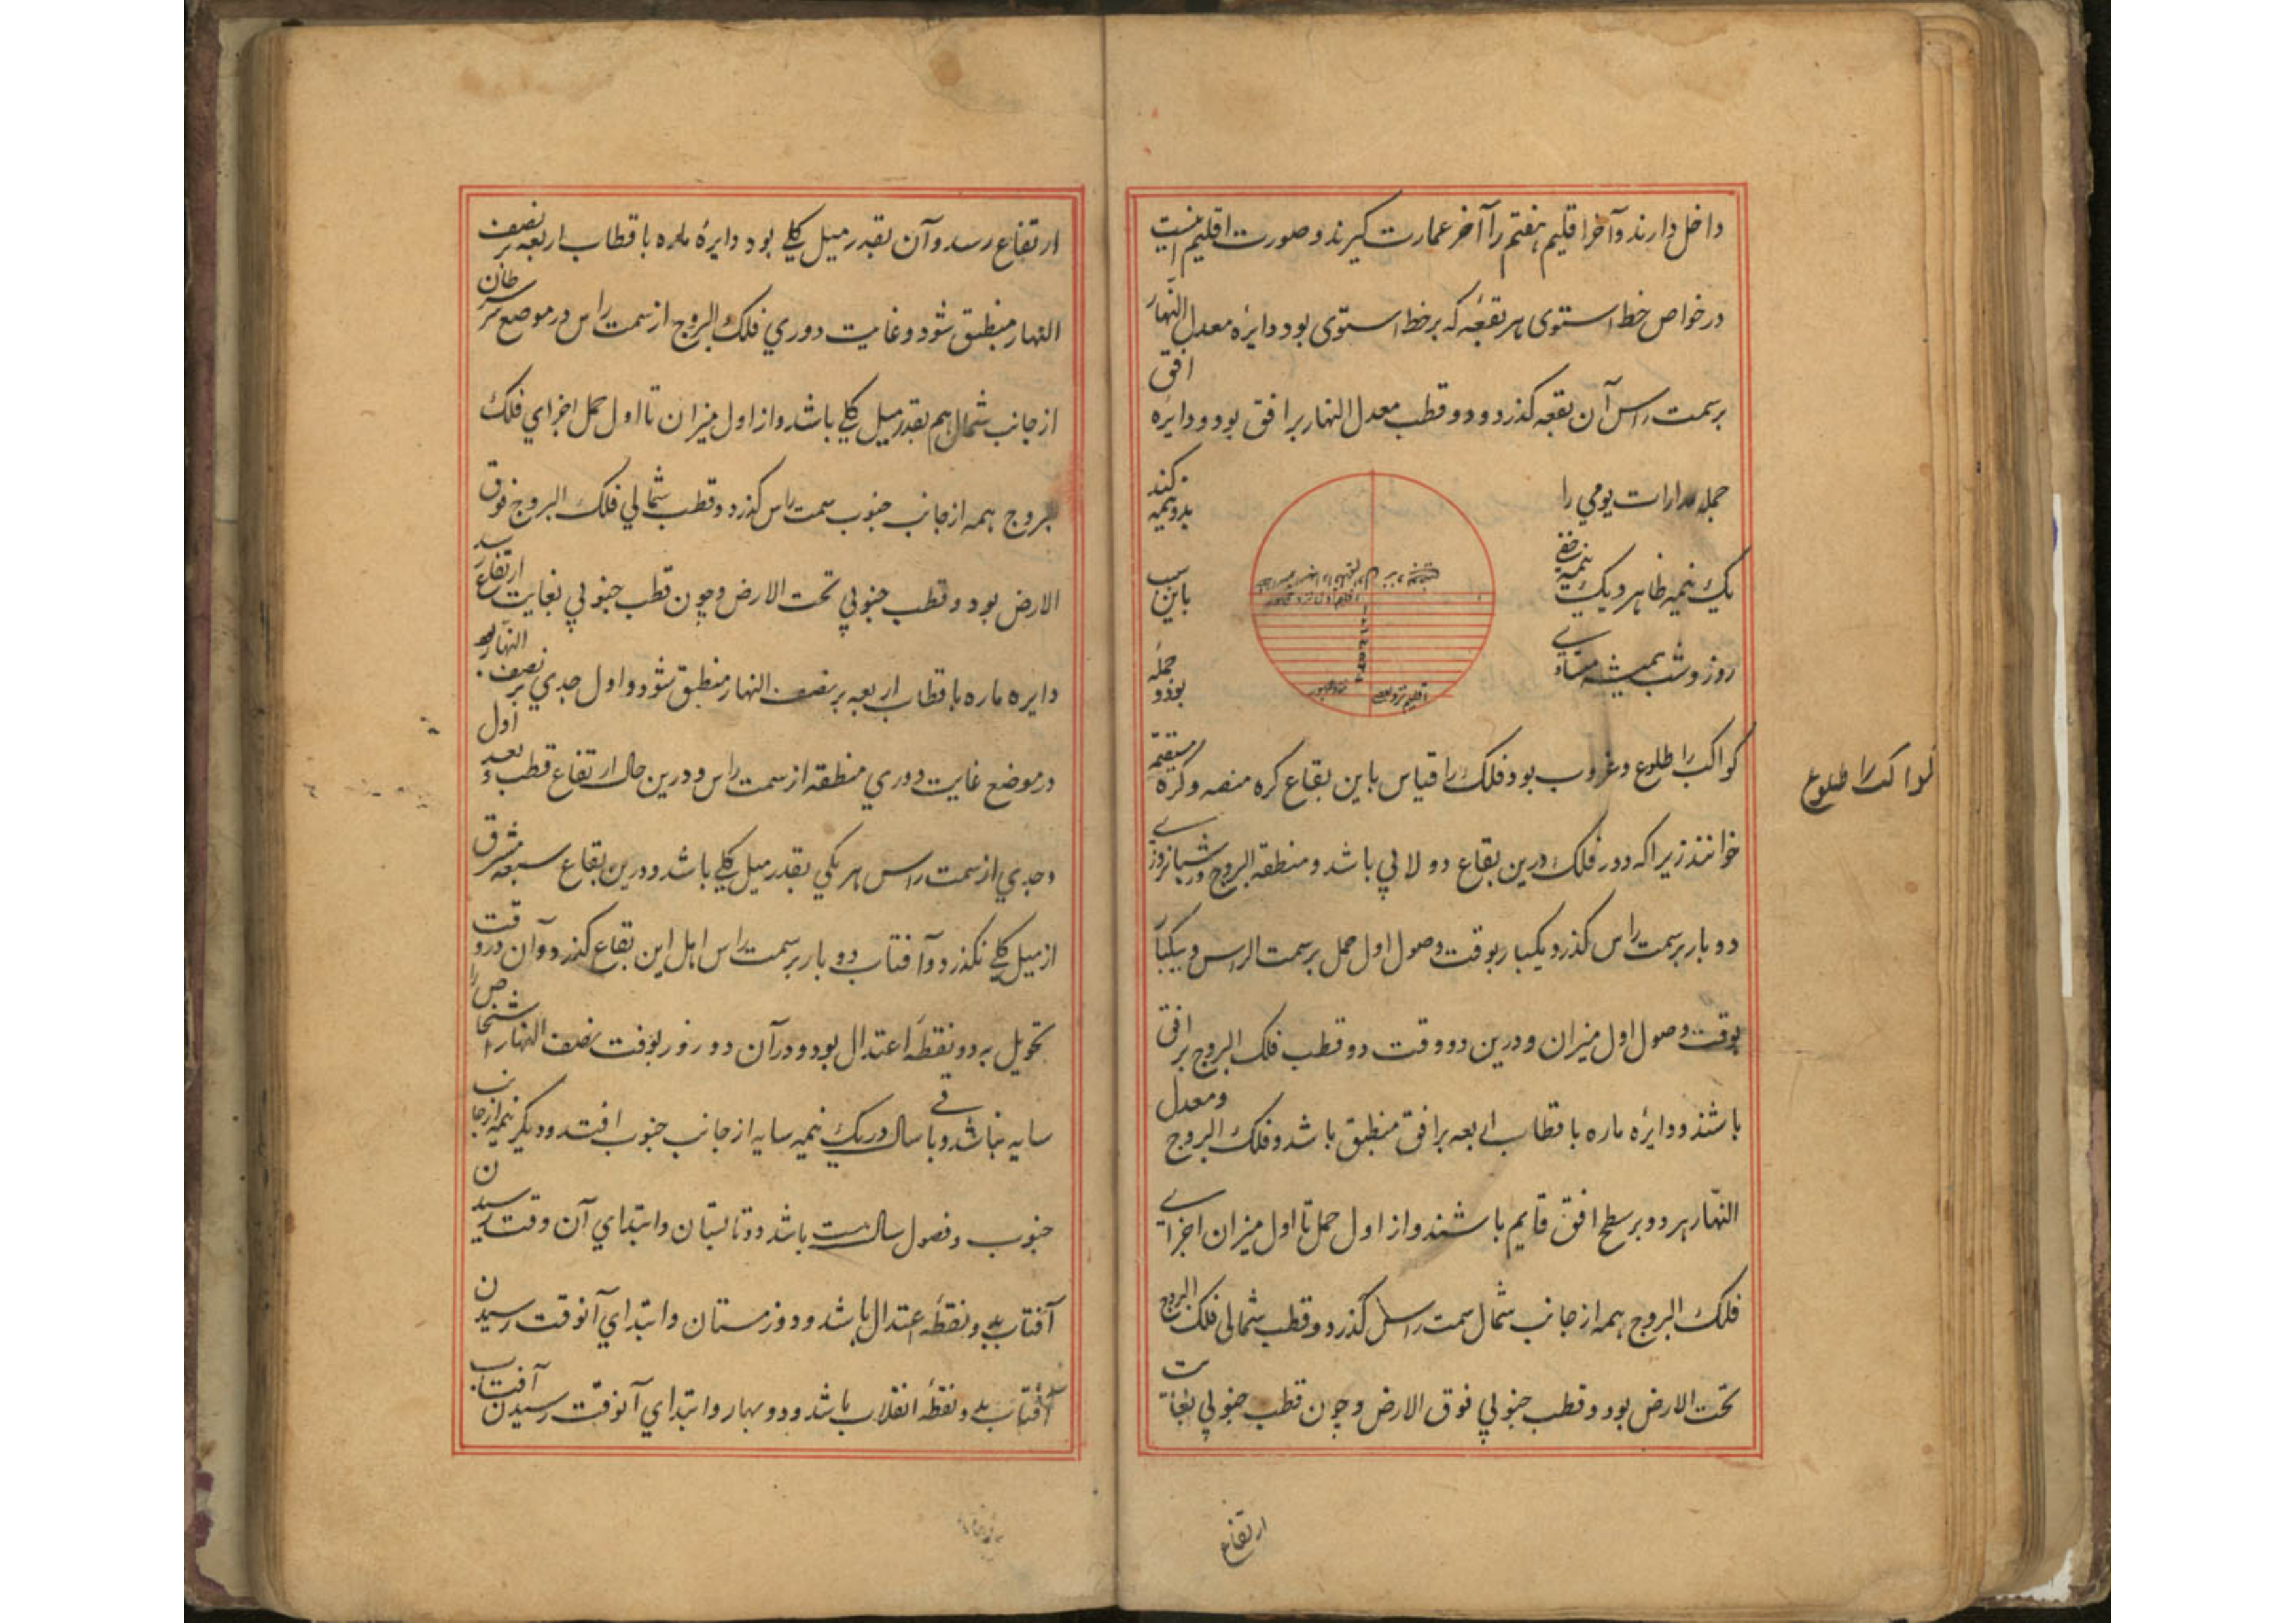 داخل دارند و آخر اقلیم هفتم را آخر عمارت کیرند و صورت اقلیم اینست
در خواص خط استوی هر بقعهٔ که بر خط استوی بود دایرهٔ معدل النهار
بر سمت راس آن بقعه کذرد و دو قطب معدل النهار بر افق بود و دایره افق
جمله مدارات یومي را بدو نیمه کند
یک نیمه ظاهر و یک نیمه خفے باین سبب
روز و شب همیشه مساوے بود و جملهٔ
کواکب را طلوع و غروب بود و فلک را قیاس باین بقاع کره منصه و کره مستقیمه
کواکب را طلوع
خوانند زیراکه دور فلک درین بقاع دولابي باشد و منطقة البروج در شبانروزے
دو بار بر سمت راس کذرد یکبار بوقت وصول اول حمل بر سمت الراس و یکبار
بوقت وصول اول میزان و درین دو وقت دو قطب فلک البروج بر افق
باشند و دایرهٔ ماره باقطاب اربعه بر افق منطبق باشد و فلک البروج و معدل
النهار هر دو بر سطح افق قایم باشند و از اول حمل تا اول میزان اجزاے
فلک البروج همه از جانب شمال سمت راس کذرد و قطب شمالی فلک البروج
تحت الارض بود و قطب جنوبي فوق الارض و چون قطب جنوبي بغایت
ارتفاع
ارتفاع رسد و آن بقدر میل کلے بود دایرهٔ ماره باقطاب اربعه بر نصف
النهار منطبق شود و غایت دوري فلک البروج از سمت راس در موضع سرطان
از جانب شمال هم بقدر میل کلے باشد و از اول میزان تا اول حمل اجزاي فلک
بروج همه از جانب جنوب سمت راس کذرد و قطب شمالي فلک البروج فوق
الارض بود و قطب جنوبي تحت الارض و چون قطب جنوبي بغایت ارتفاع رسد
دایره ماره باقطاب اربعه بر نصف النهار منطبق شود و اول جدي بر نصف النهار بود
در موضع غایت دوري منطقه از سمت راس و درین حال ارتفاع قطب و بعد اول
و جدي از سمت راس هر یکي بقدر میل کلے باشد و درین بقاع سعه مشرق
از میل کلے نکذرد و آفتاب دو بار بر سمت راس اهل این بقاع کذرد و آن در وقت
تحویل به دو نقطهٔ اعتدال بود و در آن دو روز بوقت نصف النهار اشخاص را
سایه نباشد و باقے سال در یک نیمه سایه از جانب جنوب افتد و دیکر نیمه از جانب
جنوب و فصول سال هشت باشد دو تابستان و ابتداي آن وقت رسیدن
آفتاب بدو نقطهٔ اعتدال باشد و دو زمستان و ابتداي آن وقت رسیدن
آفتاب بدو نقطهٔ انقلاب باشد و دو بهار و ابتداي آن وقت رسیدن آفتاب